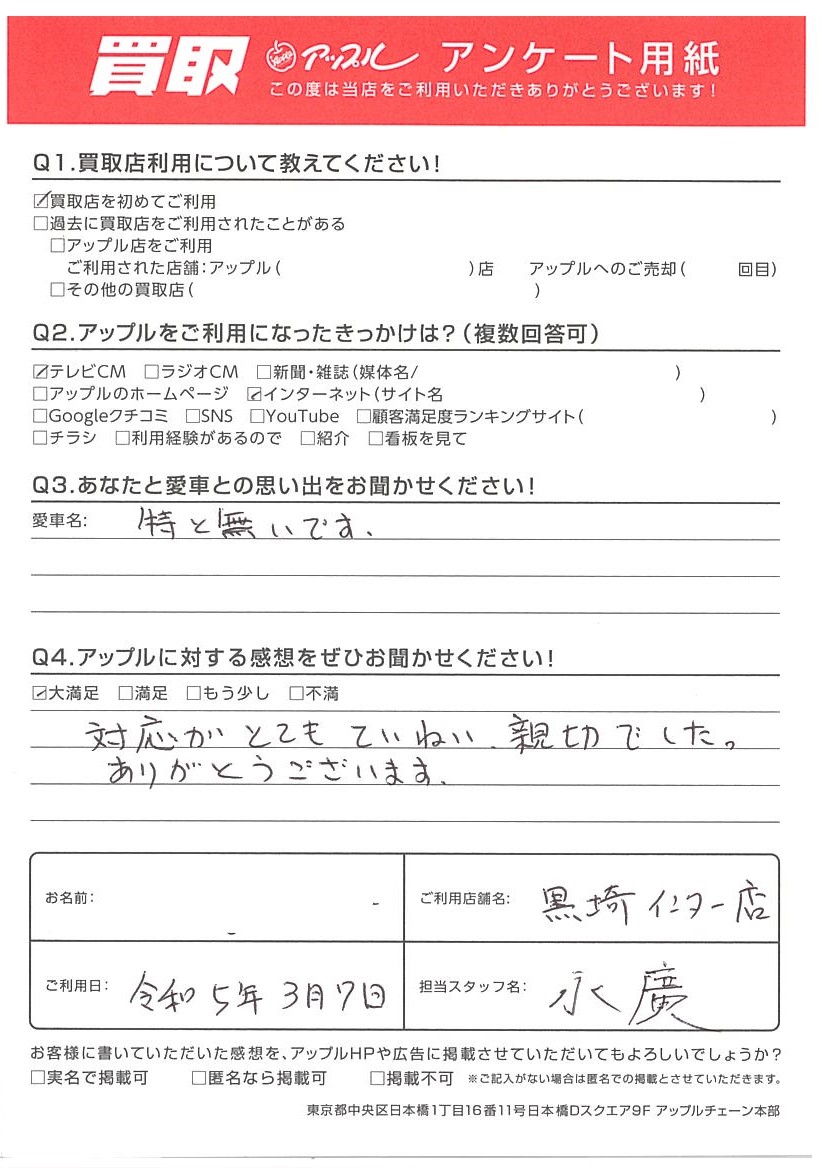 買取 アップル アンケート用紙
この度は当店をご利用いただきありがとうございます!
Q1.買取店利用について教えてください!
☑買取店を初めてご利用
□過去に買取店をご利用されたことがある
□アップル店をご利用
ご利用された店舗:アップル( )店 アップルへのご売却( 回目)
□その他の買取店( )
Q2.アップルをご利用になったきっかけは?(複数回答可)
☑テレビCM □ラジオCM □新聞・雑誌(媒体名/ )
□アップルのホームページ ☑インターネット(サイト名 )
□Googleクチコミ □SNS □YouTube □顧客満足度ランキングサイト( )
□チラシ □利用経験があるので □紹介 □看板を見て
Q3.あなたと愛車との思い出をお聞かせください!
愛車名: 特と無いです.
Q4.アップルに対する感想をぜひお聞かせください!
☑大満足 □満足 □もう少し □不満
対応がとてもていねい、親切でした。
ありがとうございます.
お名前:
ご利用店舗名: 黒埼インター店
ご利用日: 令和5年3月7日
担当スタッフ名: 永廣
お客様に書いていただいた感想を、アップルHPや広告に掲載させていただいてもよろしいでしょうか?
□実名で掲載可 □匿名なら掲載可 □掲載不可 ※ご記入がない場合は匿名での掲載とさせていただきます。
東京都中央区日本橋1丁目16番11号日本橋Dスクエア9F アップルチェーン本部